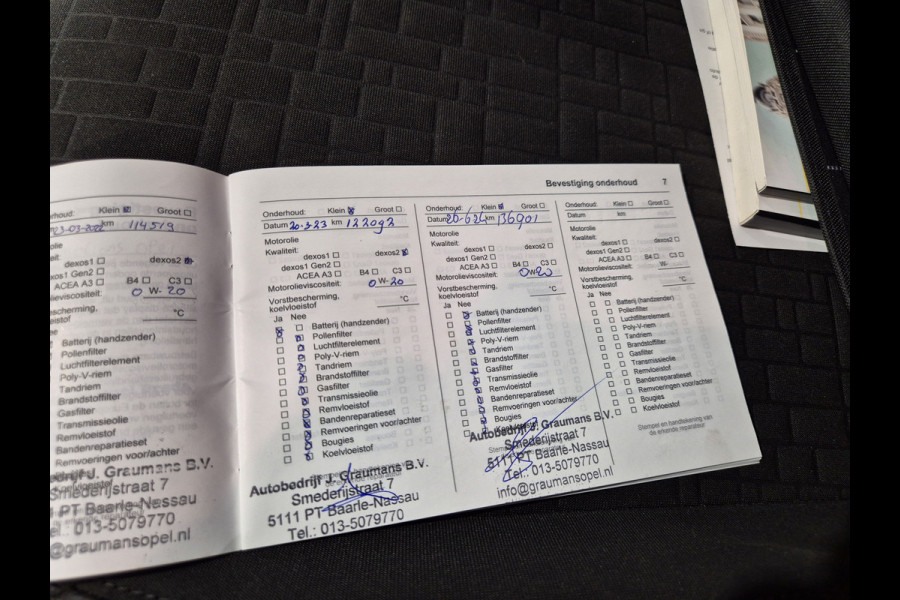 Bevestiging onderhoud 7
Klein Groot
km 114519
dexos1 dexos2
dexos1 Gen2
ACEA A3 B4 C3
0 W- 20
°C
Batterij (handzender)
Pollenfilter
Luchtfilterelement
Poly-V-riem
Tandriem
Brandstoffilter
Gasfilter
Transmissieolie
Remvloeistof
Bandenreparatieset
Remvoeringen voor/achter
Bougies
J. Graumans B.V.
Smederijstraat 7
PT Baarle-Nassau
013-5079770
@graumansopel.nl
Onderhoud: Klein Groot
Datum 20-3-23 km 122092
Motorolie
Kwaliteit:
dexos1 dexos2
dexos1 Gen2
ACEA A3 B4 C3
Motorolieviscositeit: 0 W- 20
Vorstbescherming,
koelvloeistof °C
Ja Nee
Batterij (handzender)
Pollenfilter
Luchtfilterelement
Poly-V-riem
Tandriem
Brandstoffilter
Gasfilter
Transmissieolie
Remvloeistof
Bandenreparatieset
Remvoeringen voor/achter
Bougies
Koelvloeistof
Autobedrijf J. Graumans B.V.
Smederijstraat 7
5111 PT Baarle-Nassau
Tel.: 013-5079770
Onderhoud: Klein Groot
Datum 20-6-24 km 136901
Motorolie
Kwaliteit:
dexos1 dexos2
dexos1 Gen2
ACEA A3 B4 C3
Motorolieviscositeit: 0W-20
Vorstbescherming,
koelvloeistof °C
Ja Nee
Batterij (handzender)
Pollenfilter
Luchtfilterelement
Poly-V-riem
Tandriem
Brandstoffilter
Gasfilter
Transmissieolie
Remvloeistof
Bandenreparatieset
Remvoeringen voor/achter
Bougies
Autobedrijf J. Graumans B.V.
Smederijstraat 7
5111 PT Baarle-Nassau
Tel.: 013-5079770
info@graumansopel.nl
Onderhoud: Klein Groot
Datum km
Motorolie
Kwaliteit:
dexos1 dexos2
dexos1 Gen2
ACEA A3 B4 C3
Motorolieviscositeit: W-
Vorstbescherming,
koelvloeistof °C
Ja Nee
Batterij (handzender)
Pollenfilter
Luchtfilterelement
Poly-V-riem
Tandriem
Brandstoffilter
Gasfilter
Transmissieolie
Remvloeistof
Bandenreparatieset
Remvoeringen voor/achter
Bougies
Koelvloeistof
Stempel en handtekening van
de erkende reparateur